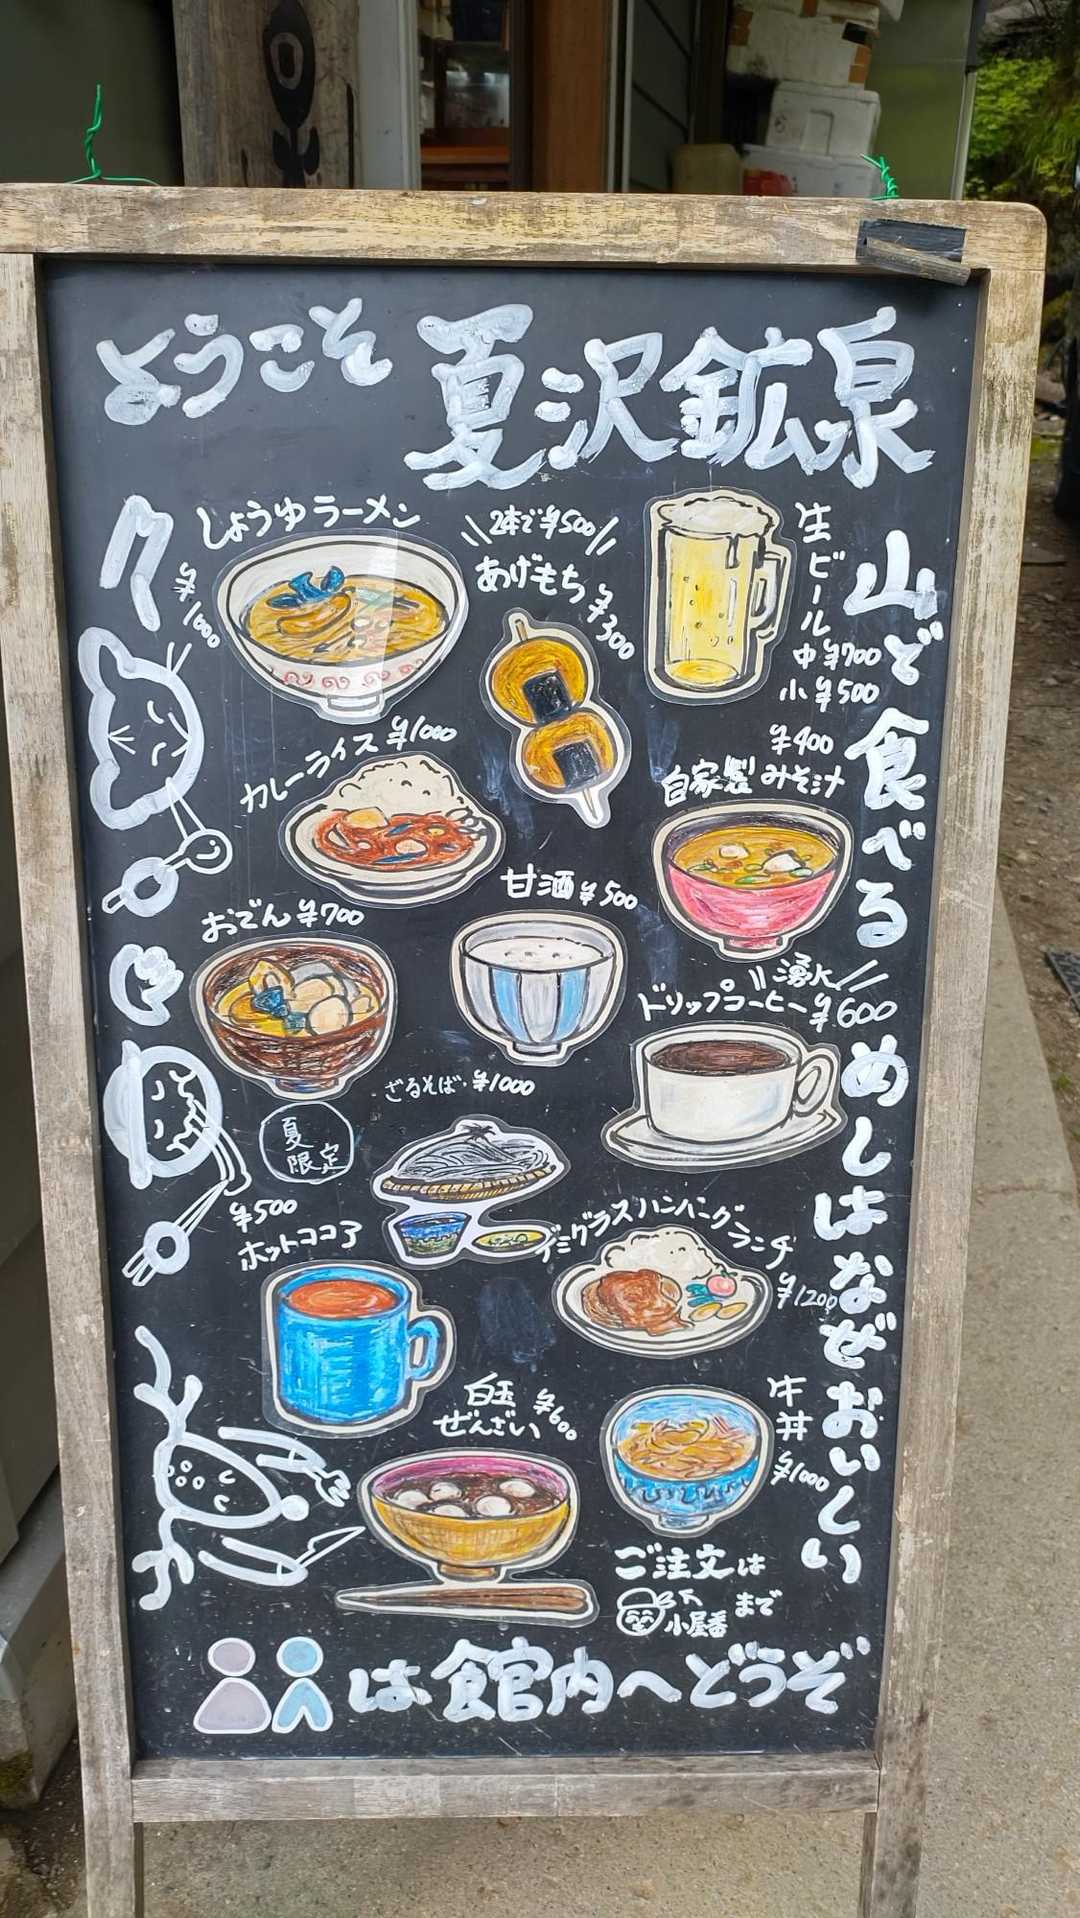 ようこそ 夏沢鉱泉
山ぞ食べるめしはなぜおいしい
しょうゆラーメン
¥1000
2本で¥500
あげもち ¥300
生ビール
中 ¥700
小 ¥500
カレーライス ¥1000
¥400
自家製みそ汁
甘酒 ¥500
おでん ¥700
湧水
ドリップコーヒー ¥600
ざるそば ¥1000
夏限定
¥500
ホットココア
デミグラスハンバーグランチ
¥1200
白玉ぜんざい ¥600
牛丼 ¥1000
ご注文は
小屋番まで
は館内へどうぞ